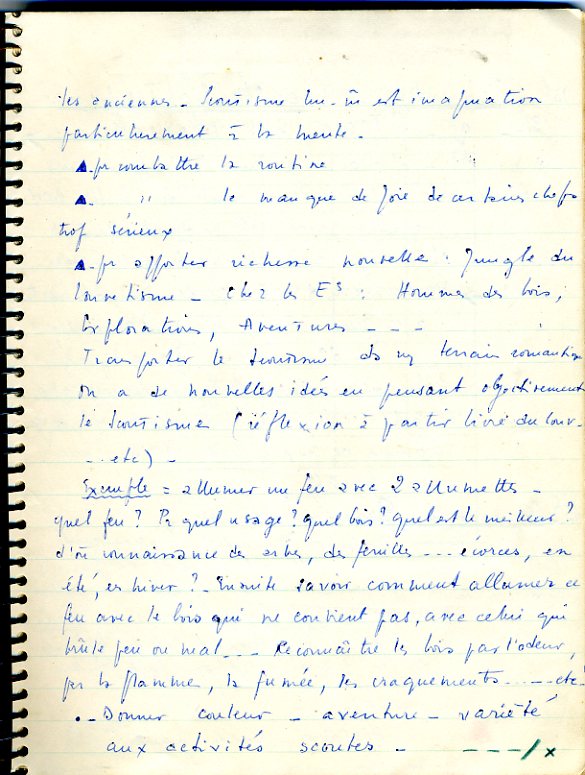 les anciennes - Scoutisme lui-m̂ est imagination
particulièrement à la meute -
▲- pr combattre la routine
▲- " le manque de joie de certains chefs
trop sérieux
▲- pr apporter richesse nouvelle : Jungle du
louvetisme - chez les ES : Hommes des bois,
Explorations, Aventures - - -
Transporter le scoutisme ds un terrain romantique
on a de nouvelles idées en pensant objectivement
le scoutisme (réflexion à partir livre du louv-
... etc) -
Exemple = allumer un feu avec 2 allumettes -
quel feu ? Pr quel usage ? quel bois ? quel est le meilleur ?
d'où connaissance des arbres, des feuilles ... écorces, en
été, en hiver ? - Ensuite savoir comment allumer ce
feu avec le bois qui ne convient pas, avec celui qui
brûle peu ou mal ... Reconnaître les bois par l'odeur,
par la flamme, la fumée, les craquements ..... etc !
• - Donner couleur - aventure - variété
aux activités scoutes - - - - / x